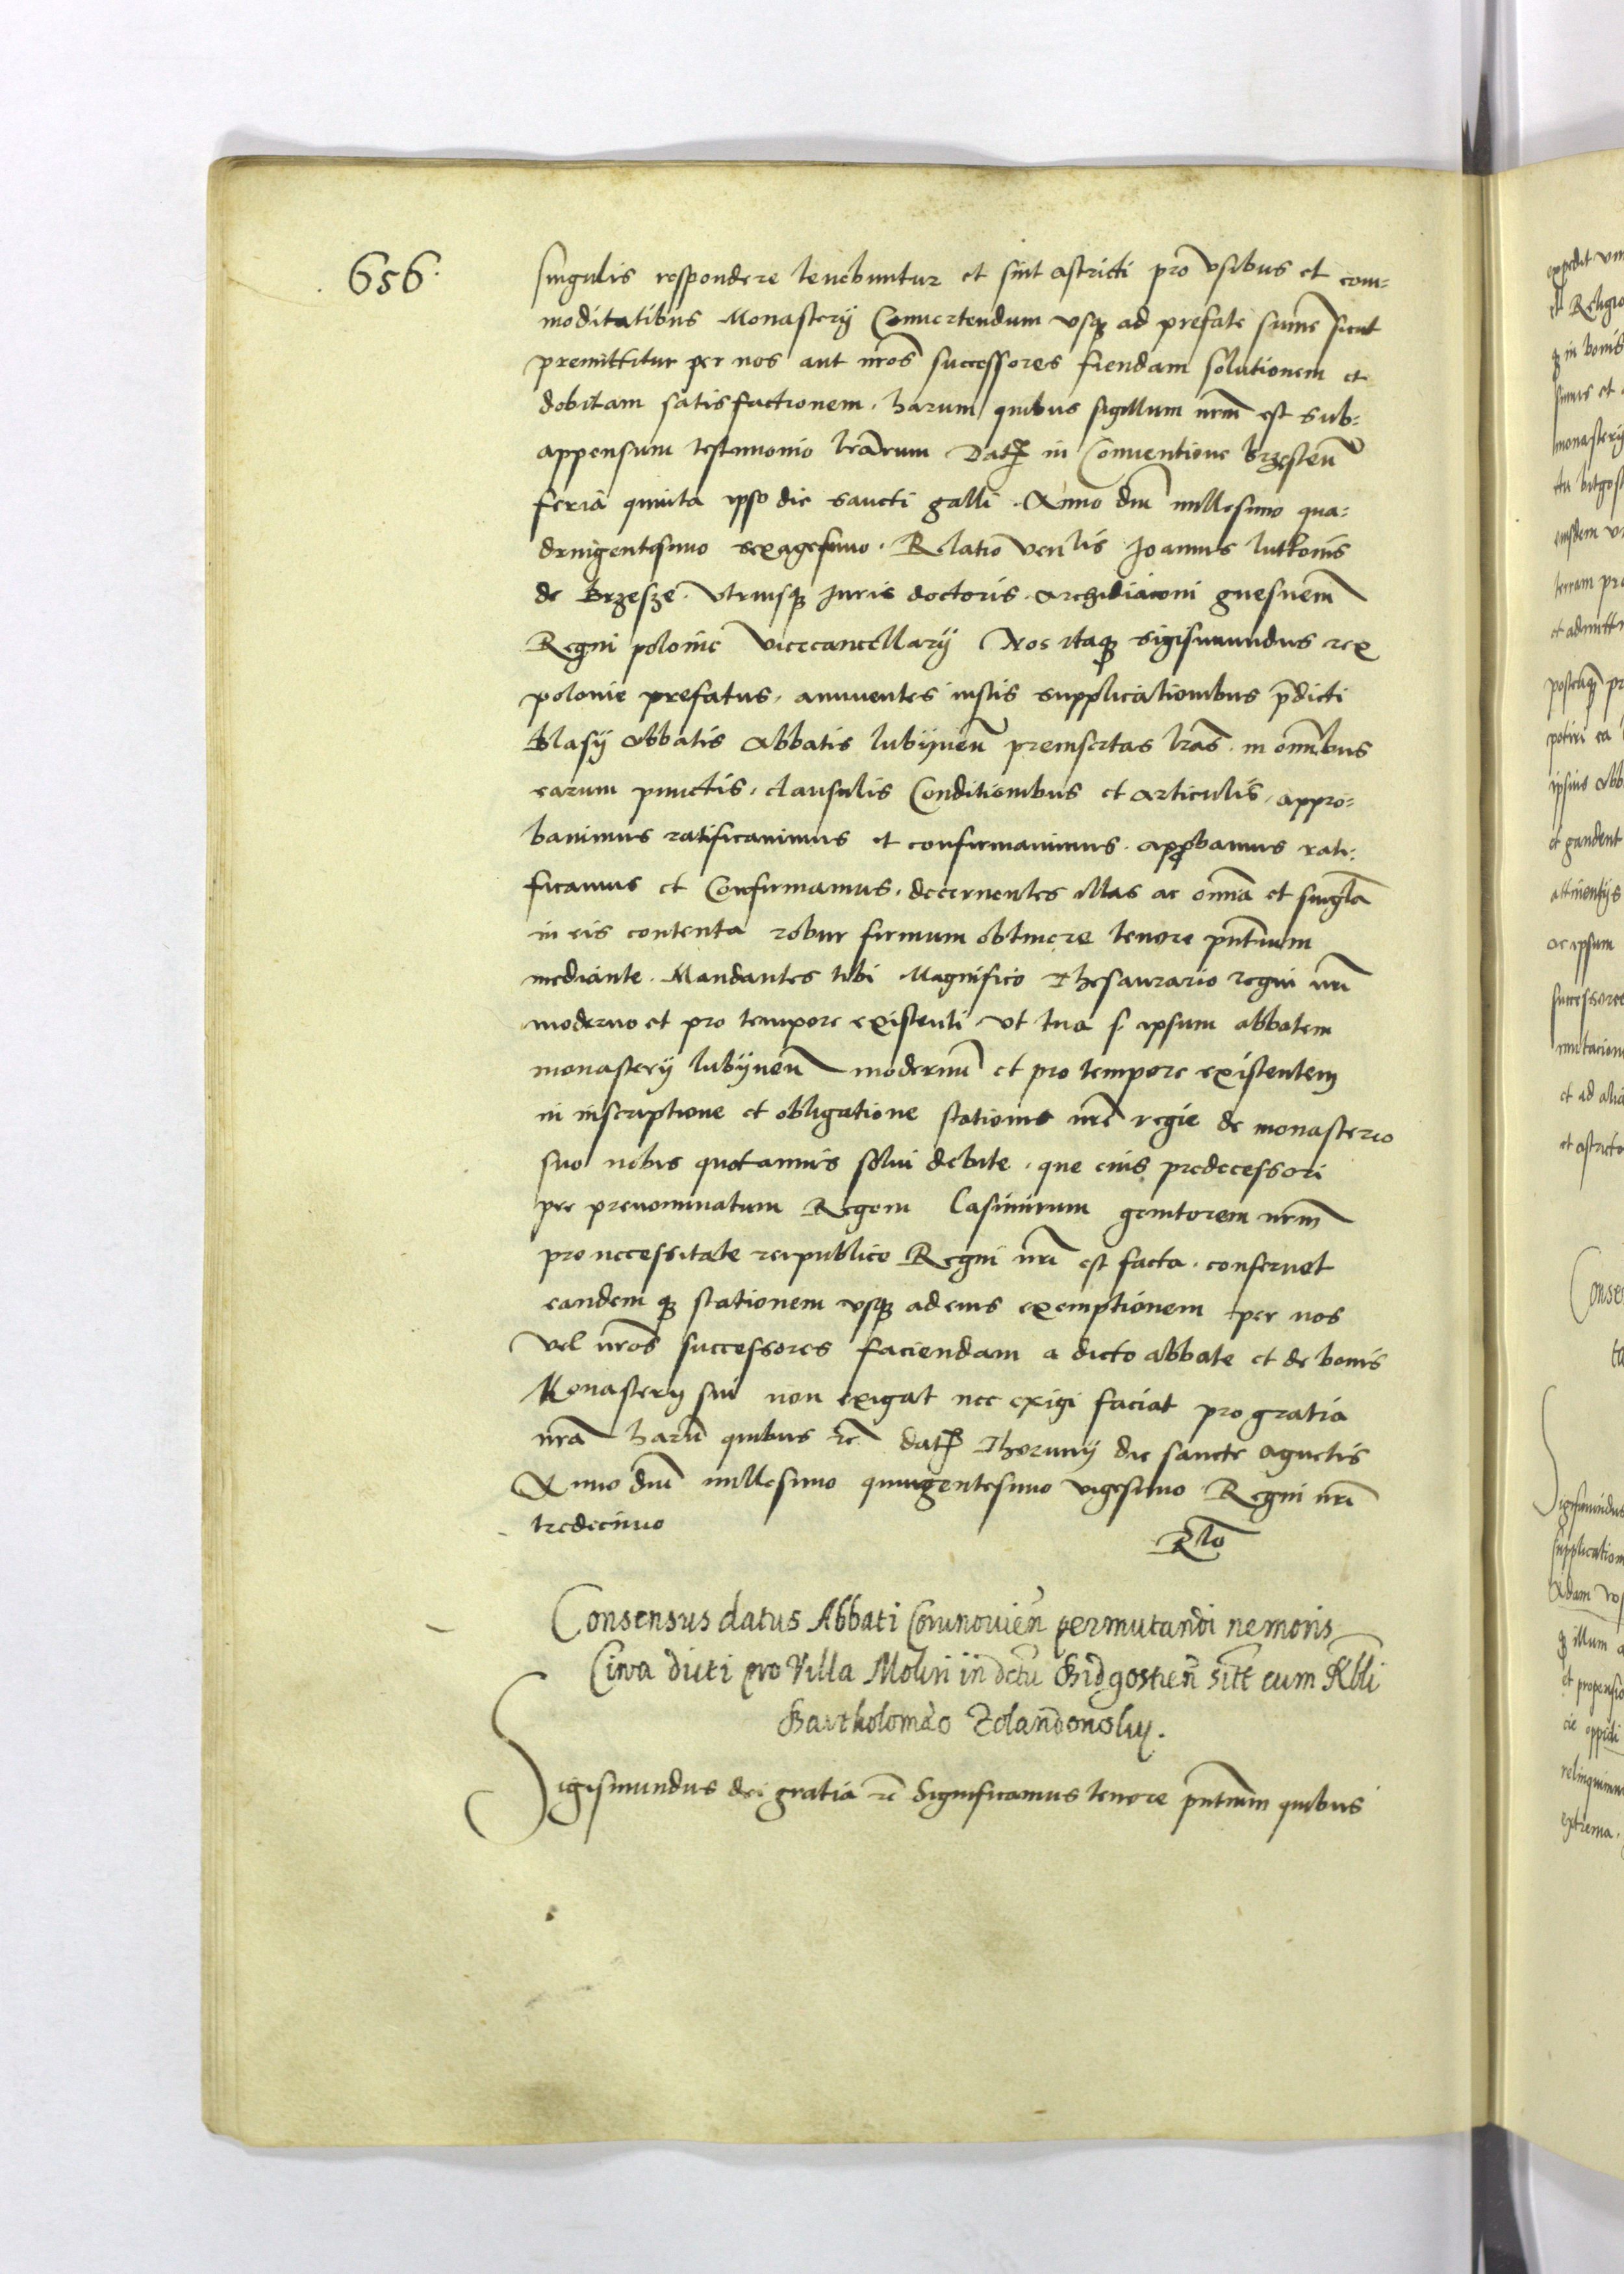 656.
singulis respondere tenebuntur et sint astricti pro vsibus et com=
moditatibus Monasterij Conuertendum vsq ad prefate sume sicut
premittitur per nos aut nros successores fiendam solutionem et
debitam satisfactionem. harum quibus sigillum nrm est sub=
appensum testimonio lrarum Dat in Conuentione brzesten
feria quinta ipso die sancti galli. Anno dni millesimo qua=
dringentesimo sexagesimo. Relatio venlis Joannis lutkonis
de Brzesze. vtriusq Juris doctoris. Archidiaconi gnesnen
Regni polonie vicecancellarij Nos itaq sigismundus rex
polonie prefatus, annuentes iustis supplicationibus pdicti
Blasij Abbatis Abbatis lubijnen preinsertas lras. in omnibus
earum punctis, clausulis Conditionibus et articulis, appro=
bauimus ratificauimus et confirmauimus. approbamus rati=
ficamus et Confirmamus. decernentes illas ac omnia et singla
in eis contenta robur firmum obtinere tenore pntium
mediante. Mandantes tibi Magnifico Thesaurario regni nri
moderno et pro tempore existenti vt tua s ipsum abbatem
monasterij lubijnen modernu et pro tempore existentem
in inscriptione et obligatione stationis nre regie de monasterio
suo nobis quotannis solui debite. que eius predecessori
per prenominatum Regem Casimirum genitorem nrm
pro necessitate reipublice Regni nri est facta. conseruet
eandem q stationem vsq ad eius exemptionem per nos
vel nros successores faciendam a dicto abbate et de bonis
Monasterij sui non exigat nec exigi faciat pro gratia
nra haru quibus rc dat Thorunij die sancte Agnetis
Anno dni millesimo quingentesimo vigesimo Regni nri
tredecimo
Rlo
Consensus datus Abbati Coronouien permutandi nemoris
Circa dicti pro Villa Molin in dctu Bidgostien site cum
Bartholomeo
Sigismundus dei gratia rc Significamus tenore pntium quibus